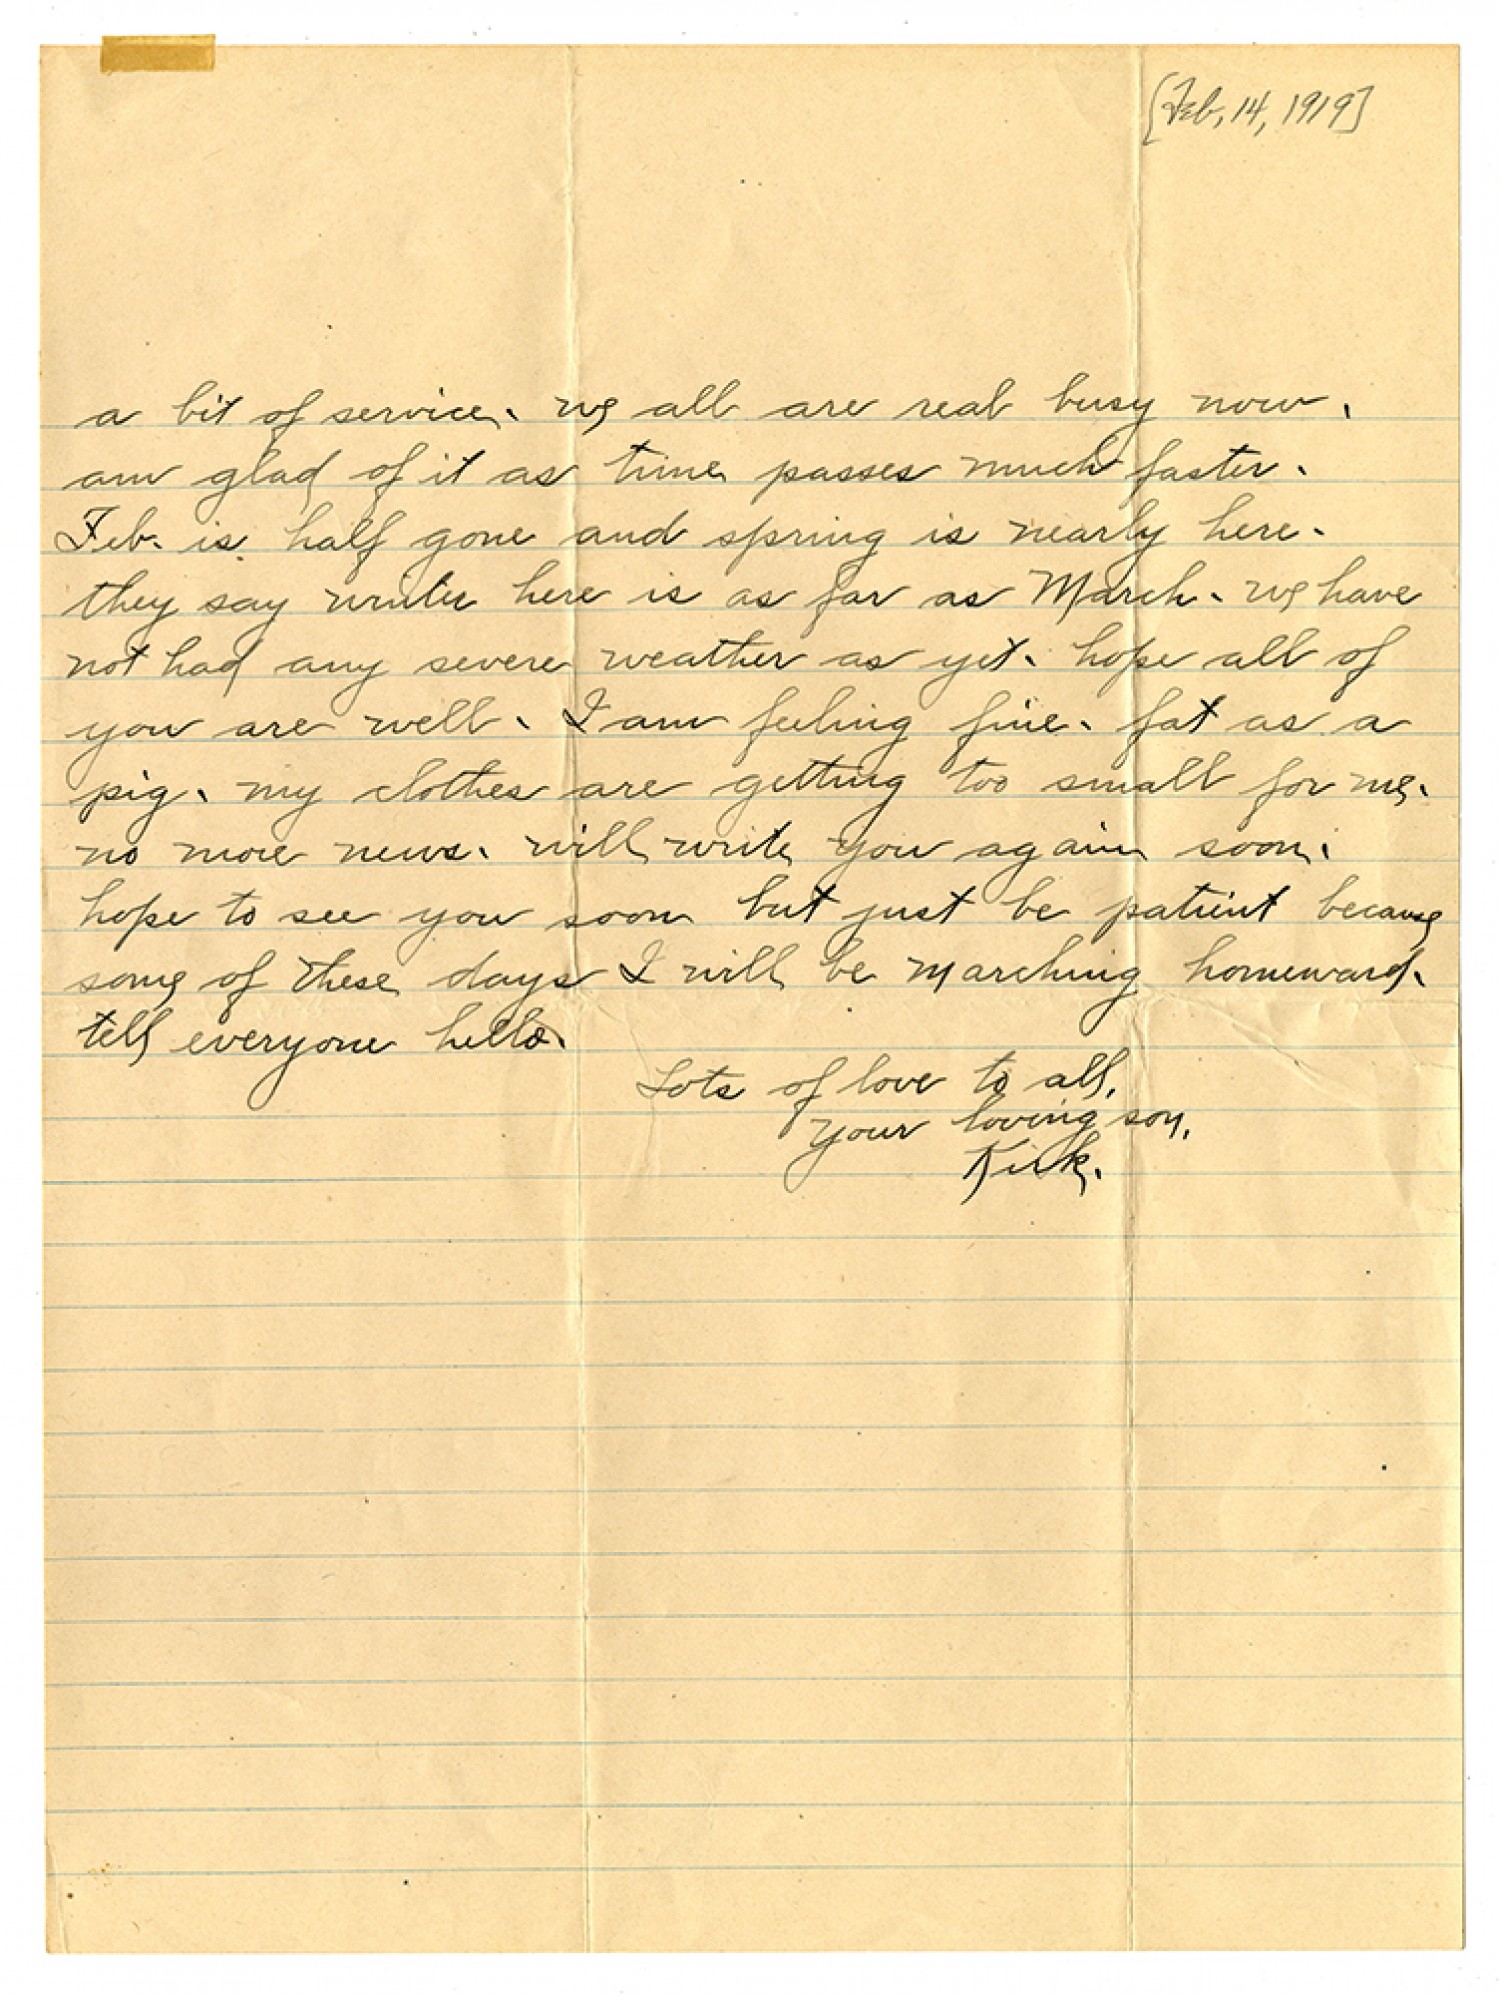 [Feb. 14, 1919]
a bit of service. we all are real busy now.
am glad of it as time passes much faster.
Feb. is half gone and spring is nearly here.
they say winter here is as far as March. we have
not had any severe weather as yet. hope all of
you are well. I am feeling fine. fat as a
pig. my clothes are getting too small for me.
no more news. will write you again soon.
hope to see you soon but just be patient because
some of these days I will be marching homeward.
tell everyone hello.
Lots of love to all,
your loving son,
Kirk.